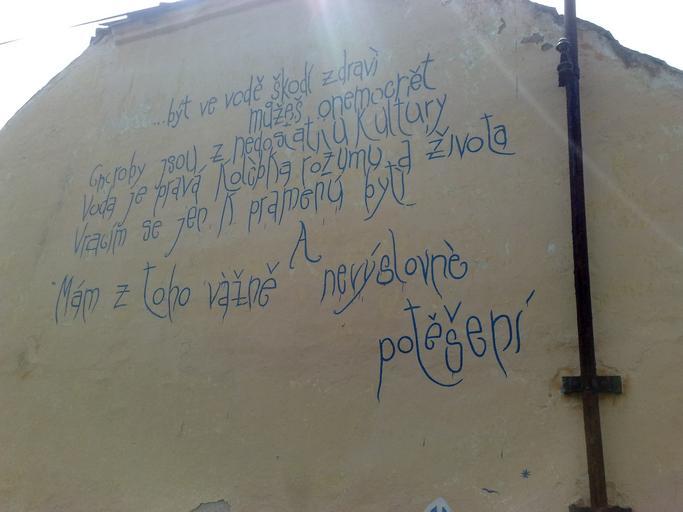 ...být ve vodě škodí zdraví
můžeš onemocnět
Choroby jsou z nedostatku kultury
Voda je pravá kolébka rozumu a života
Vracím se jen k prameni bytí
A
Mám z toho vážně nevýslovné
potěšení